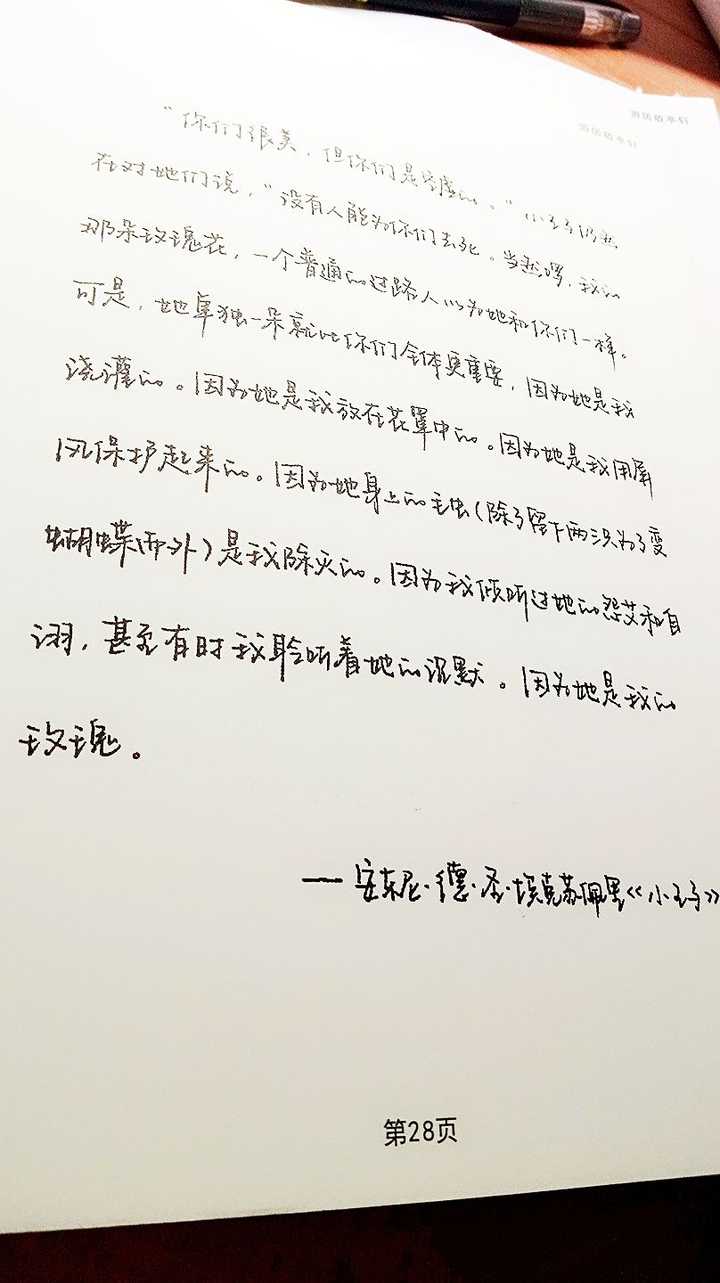 “你们很美，但你们是空虚的。”小王子仍然
在对她们说，“没有人能为你们去死。当然啰，我的
那朵玫瑰花，一个普通的过路人以为她和你们一样。
可是，她单独一朵就比你们全体更重要，因为她是我
浇灌的。因为她是我放在花罩中的。因为她是我用屏
风保护起来的。因为她身上的毛虫（除了留下两三只为了变
蝴蝶而外）是我除灭的。因为我倾听过她的怨艾和自
诩，甚至有时我聆听着她的沉默。因为她是我的
玫瑰。
——安东尼·德·圣·埃克苏佩里《小王子》
第28页